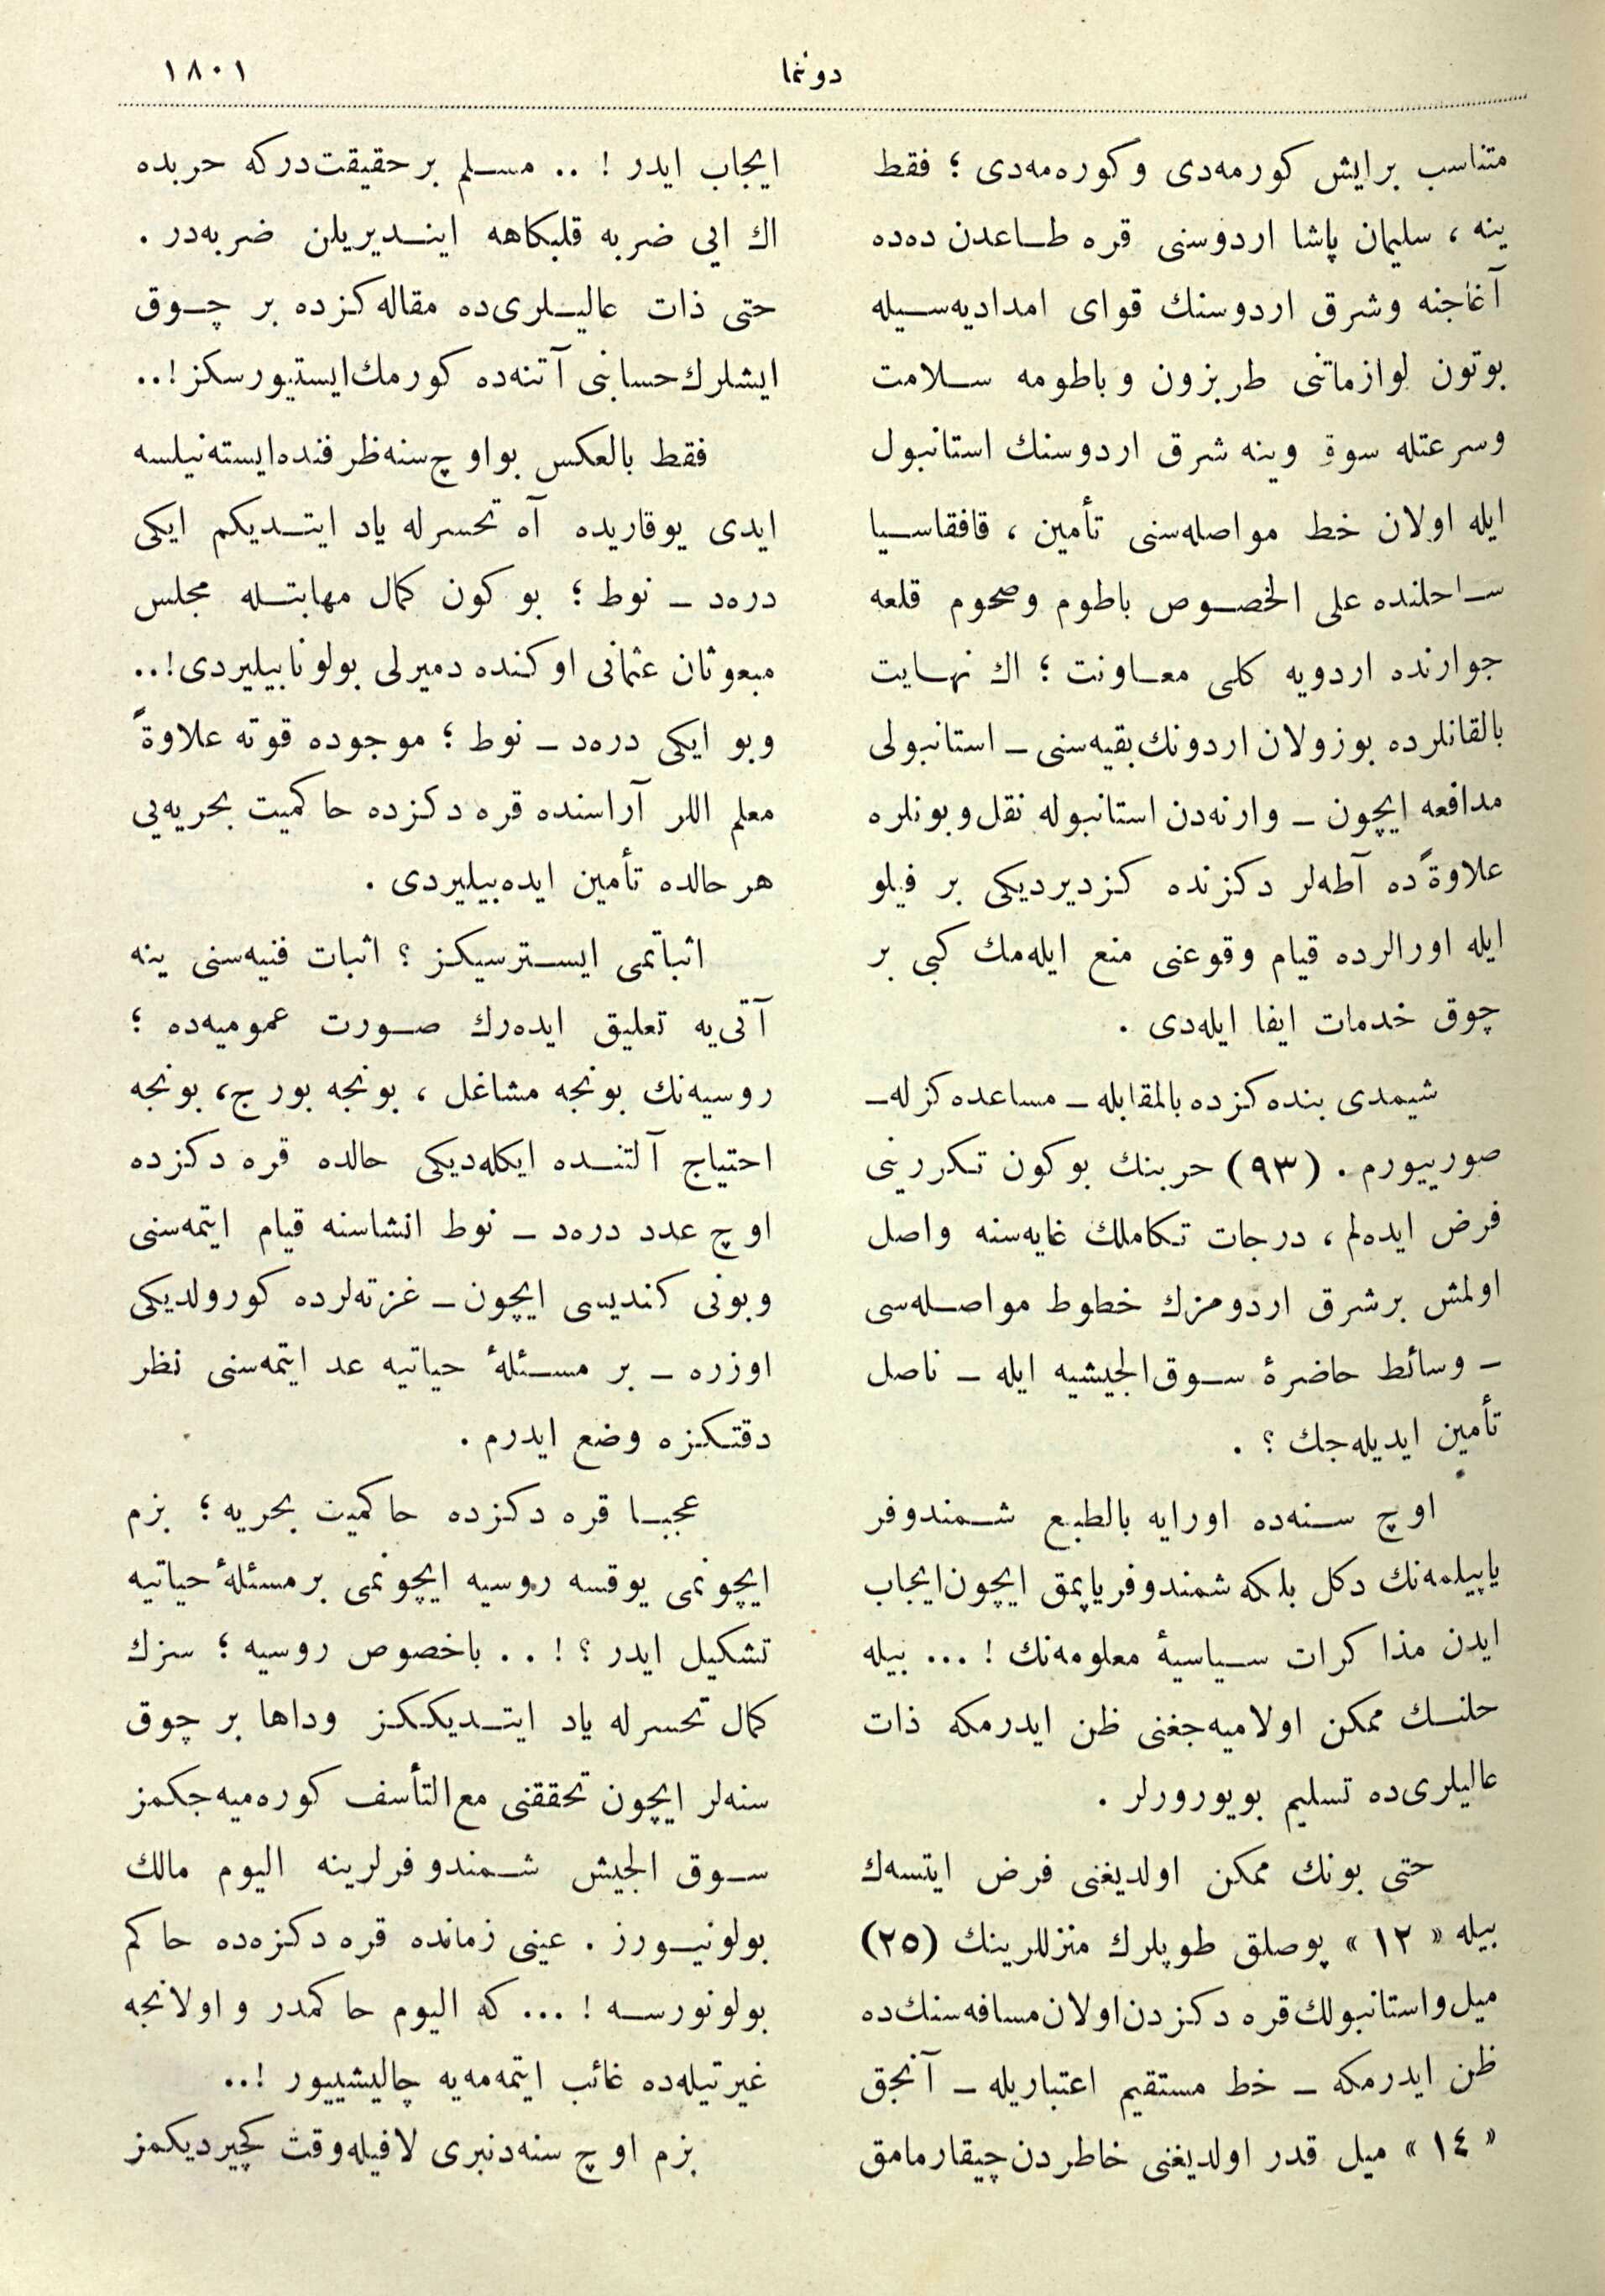 دونما
١٨٠١
متناسب برایش كورمەدی وكورەمەدی ؛ فقط
ینه ، سلیمان پاشا اردوسنی قره طاعدن دەدە
آغاجنه وشرق اردوسنك قوای امدادیەسیله
بوتون لوازماتنی طربزون وباطومه سلامت
وسرعتله سوق وینه شرق اردوسنك استانبول
ایله اولان خط مواصلەسنی تأمین ، قافقاسیا
ساحلنده علی الخصوص باطوم وصحوم قلعه
جوارنده اردویه كلی معاونت ؛ اك نهایت
بالقانلرده بوزولان اردونك بقیەسنی ــ استانبولی
مدافعه ایچون ــ وارنەدن استانبوله نقل وبونلره
علاوةً ده آطەلر دكزنده كزدیردیكی بر فیلو
ایله اورالرده قیام وقوعنی منع ایلەمك كبی بر
چوق خدمات ایفا ایلەدی .
شیمدی بندەكزده بالمقابله ــ مساعدەكزله ــ
صورییورم . (٩٣) حربنك بوكون تكررینی
فرض ایدەلم ، درجات تكاملك غایەسنه واصل
اولمش برشرق اردومزك خطوط مواصلەسی
ــ وسائط حاضرۀ سوق‌الجیشیه ایله ــ ناصل
تأمین ایدیلەجك ؟ .
اوچ سنەده اورایه بالطبع شمندوفر
یاپیلمەنك دكل بلكه شمندوفر یاپمق ایچون ایجاب
ایدن مذاكرات سیاسیۀ معلومەنك ! ... بیله
حلنك ممكن اولامیەجغنی ظن ایدرمكه ذات
عالیلری‌ده تسلیم بویورورلر .
حتی بونك ممكن اولدیغنی فرض ایتسەك
بیله « ١٢ » پوصلق طوپلرك منزللرینك (٢٥)
میل واستانبولك قره دكزدن اولان مسافەسنك‌ده
ظن ایدرمكه ــ خط مستقیم اعتباریله ــ آنجق
« ١٤ » میل قدر اولدیغنی خاطردن چیقارمامق
ایجاب ایدر ! .. مسلم برحقیقت‌دركه حربده
اك ایی ضربه قلبكاهه ایندیریلن ضربەدر .
حتی ذات عالیلری‌ده مقالەكزده بر چوق
ایشلرك حسابنی آتنەده كورمك ایستیورسكز !..
فقط بالعكس بو اوچ سنەظرفنده ایستەنیلسه
ایدی یوقاریده آه تحسرله یاد ایتدیكم ایكی
درەد ــ نوط ؛ بوكون كمال مهابتله مجلس
مبعوثان عثمانی اوكنده دمیرلی بولونابیلیردی !..
وبو ایكی درەد ــ نوط ؛ موجوده قوته علاوةً
معلم اللر آراسنده قره دكزده حاكمیت بحریەیی
هر حالده تأمین ایدەبیلیردی .
اثباتمی ایسترسیكز ؟ اثبات فنیەسنی ینه
آتی‌یه تعلیق ایدەرك صورت عمومیەده ؛
روسیەنك بونجه مشاغل ، بونجه بورج، بونجه
احتیاج آلتنده ایكلەدیكی حالده قره دكزده
اوچ عدد درەد ــ نوط انشاسنه قیام ایتمەسنی
وبونی كندیسی ایچون ــ غزتەلرده كورولدیكی
اوزره ــ بر مسئلۀ حیاتیه عد ایتمەسنی نظر
دقتكزه وضع ایدرم .
عجبا قره دكزده حاكمیت بحریه ؛ بزم
ایچونمی یوقسه روسیه ایچونمی برمسئلۀ حیاتیه
تشكیل ایدر ؟ ! . . باخصوص روسیه ؛ سزك
كمال تحسرله یاد ایتدیككز وداها بر چوق
سنەلر ایچون تحققنی مع‌التأسف كورەمیەجكمز
سوق الجیش شمندوفرلرینه الیوم مالك
بولونیورز . عینی زمانده قره دكزەده حاكم
بولونورسه ! ... كه الیوم حاكمدر و اولانجه
غیرتیلەده غائب ایتمەمەیه چالیشییور !..
بزم اوچ سنەدنبری لافیله‌وقت كچیردیكمز